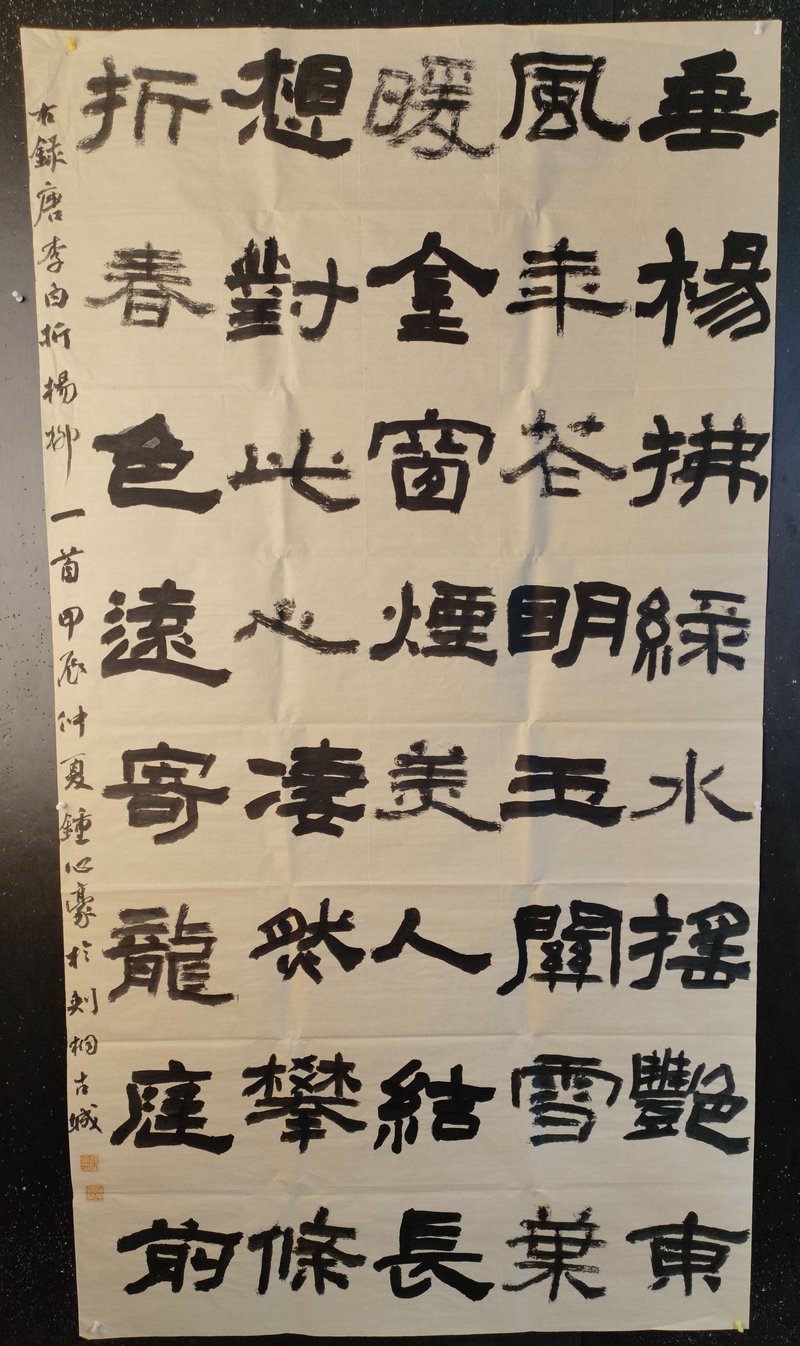 垂楊拂綠水搖豔東
風年花明玉關雪葉
暖金窗煙美人結長
想對此心淒然攀條
折春色遠寄龍庭前
右錄唐李白折楊柳一首甲辰仲夏鍾心豪於刺桐古城